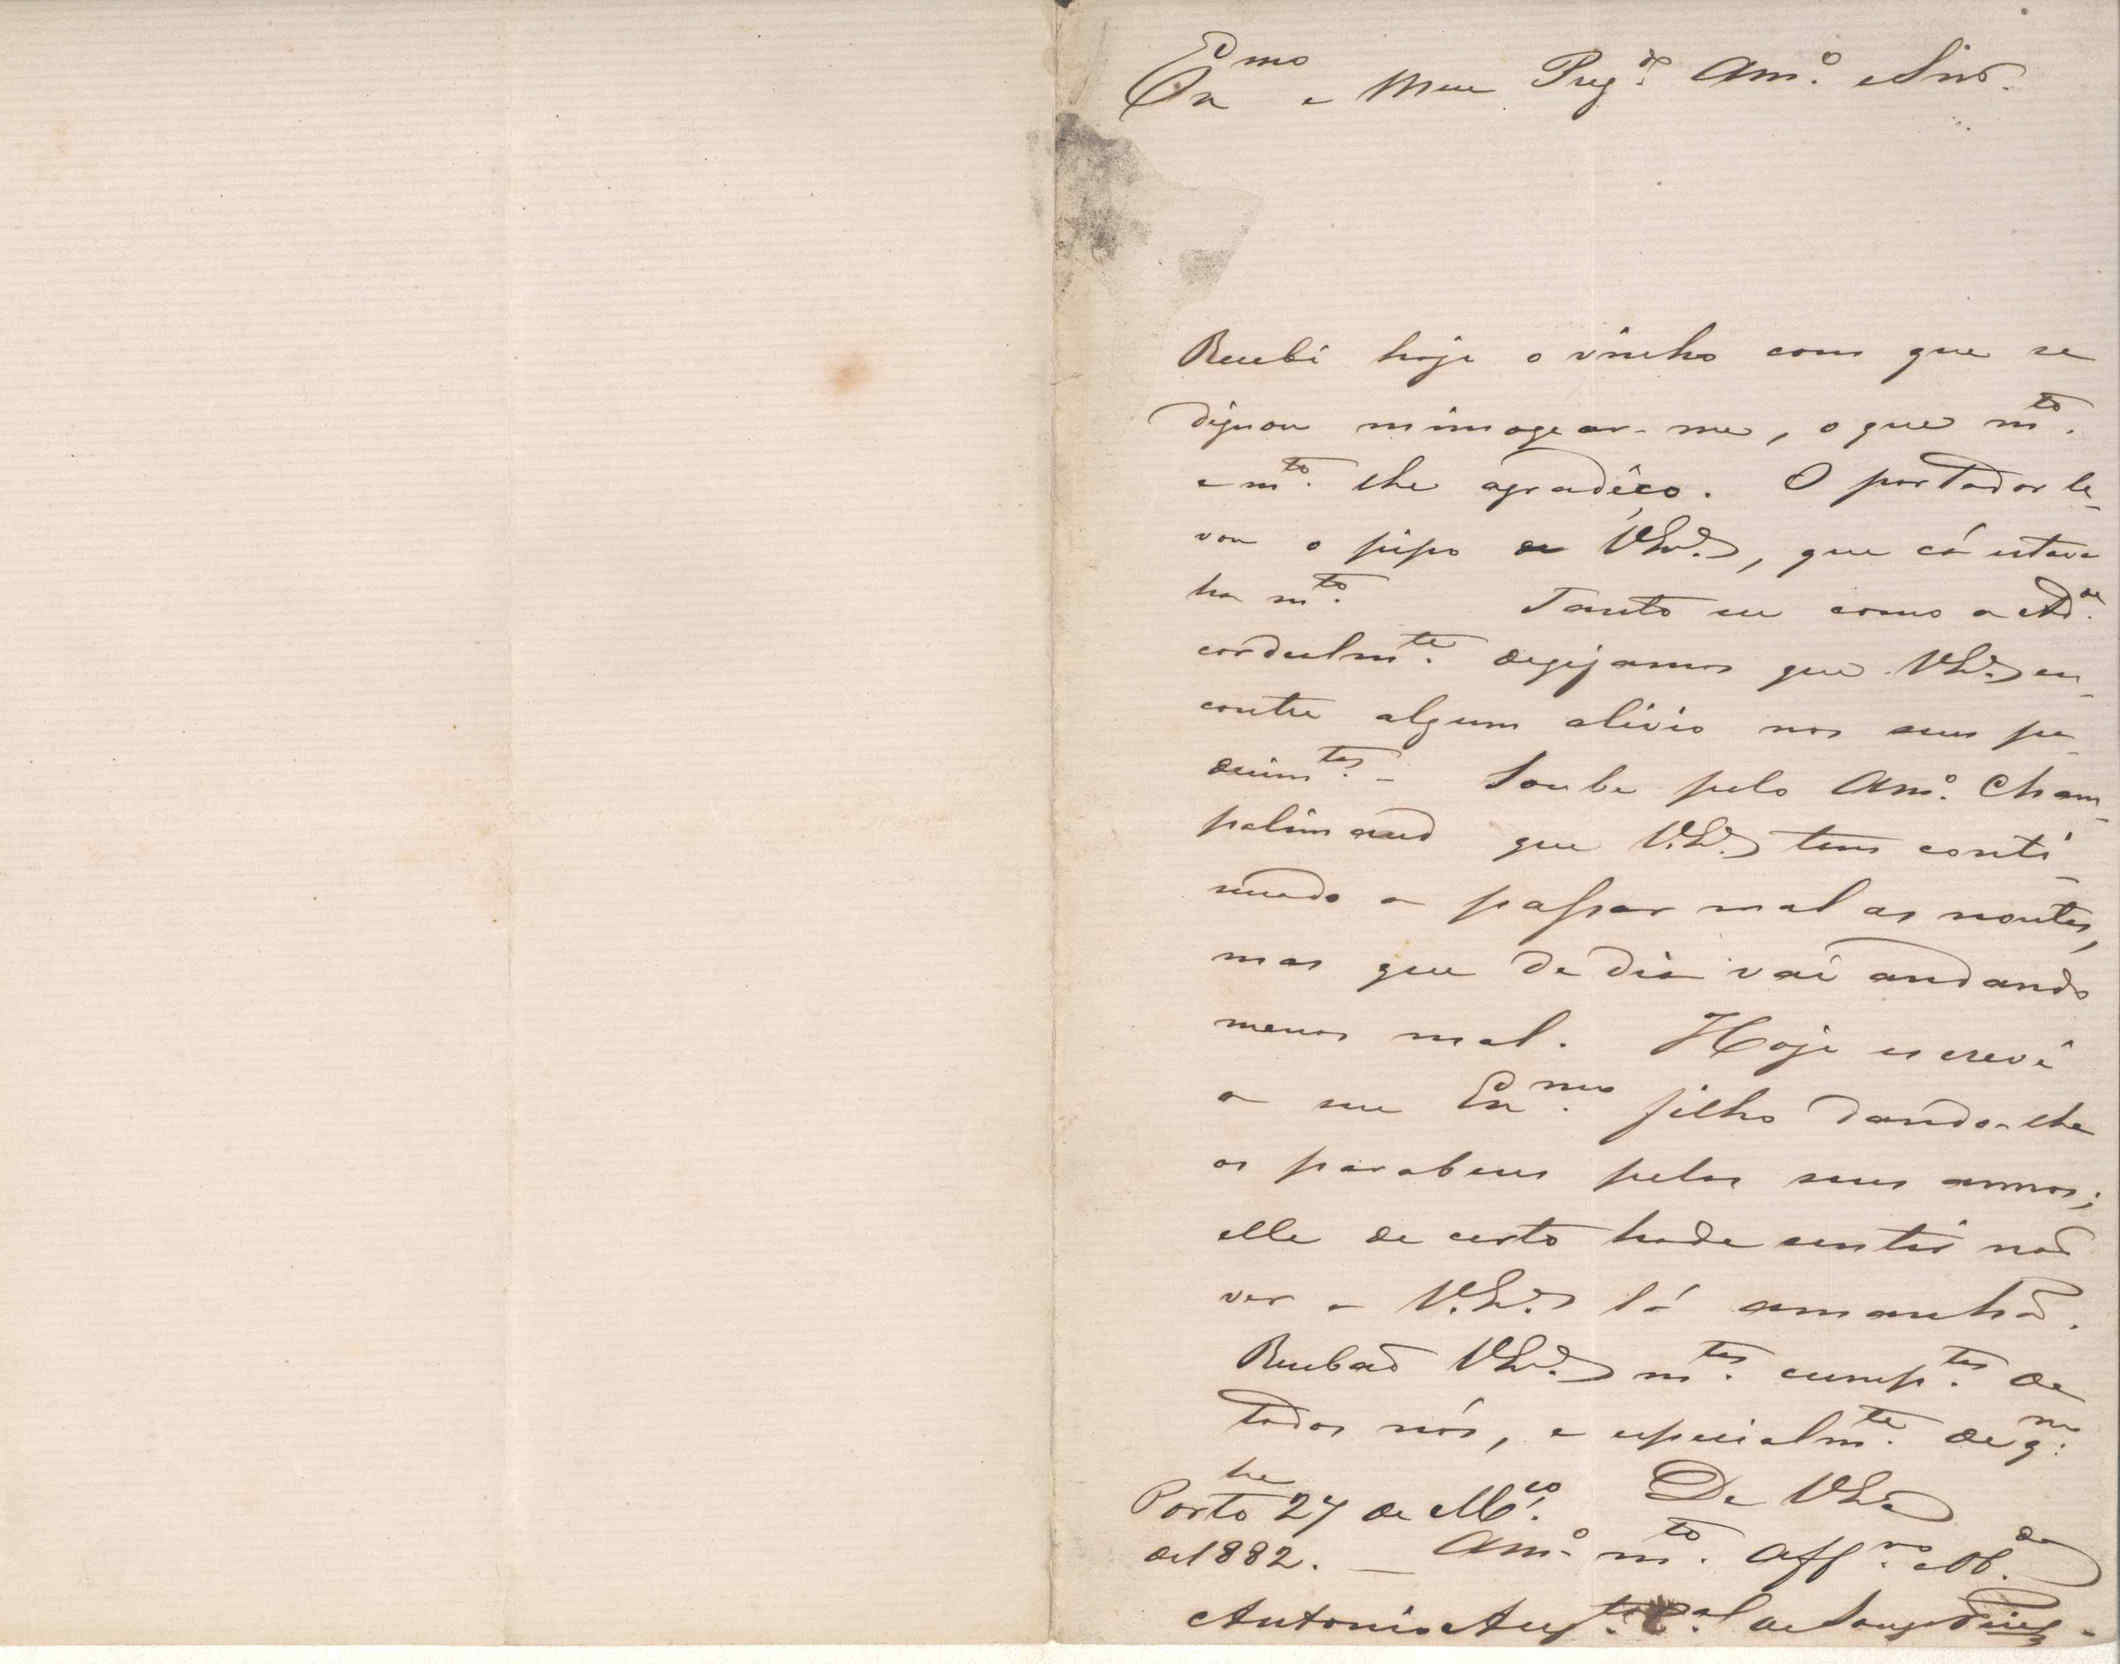 Ex.mo e Meu Prez.do Am.o e Snr.
Recebi hoje o vinho com que se
dignou mimogear-me, o que m.to
e m.to lhe agradêço. O portador le-
vou o pipo de VEx.a, que cá estava
ha m.to. Tanto eu como a
cordealm.te dezejamos que VEx.a en-
contre algum alivio nos seus pa-
decim.tos - Soube pelo Am.o Cham-
palimaud que V.Ex.a tem conti-
nuado a passar mal as noutes,
mas que de dia vai andando
menos mal. Hoje escrevi
a seu Ex.mo filho dando-lhe
os parabens pelos seus annos;
elle de certo hade sentir não
ver a V.Ex.a lá amanhã.
Recebaõ VEx.as m.tos cump.tos de
todos nós, e especialm.te de q.m
he De VEx.a
Porto 27 de M.ço
de 1882. — Am.o m.to Aff.vo e Ob.do
Antonio Aug.to de Souza